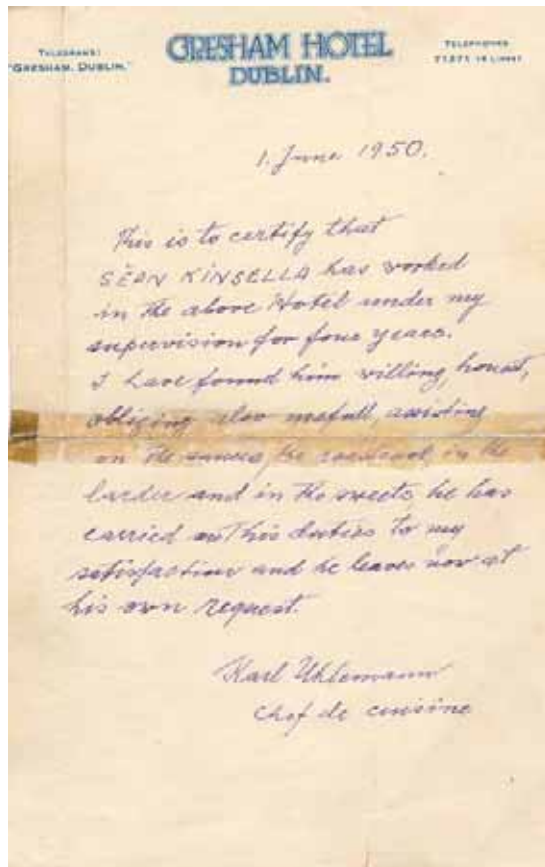 TELEGRAMS:
"GRESHAM, DUBLIN."
GRESHAM HOTEL
DUBLIN.
TELEPHONE
1. June 1950.
This is to certify that
SEÀN KINSELLA has worked
in the above Hotel under my
supervision for four years.
I have found him willing, honest,
obliging also usefull, assisting
on the sauces, the in the
larder and in the sweets, he has
carried out his duties to my
satisfaction and he leaves now at
his own request.
Karl Uhlemann
Chef de cuisine